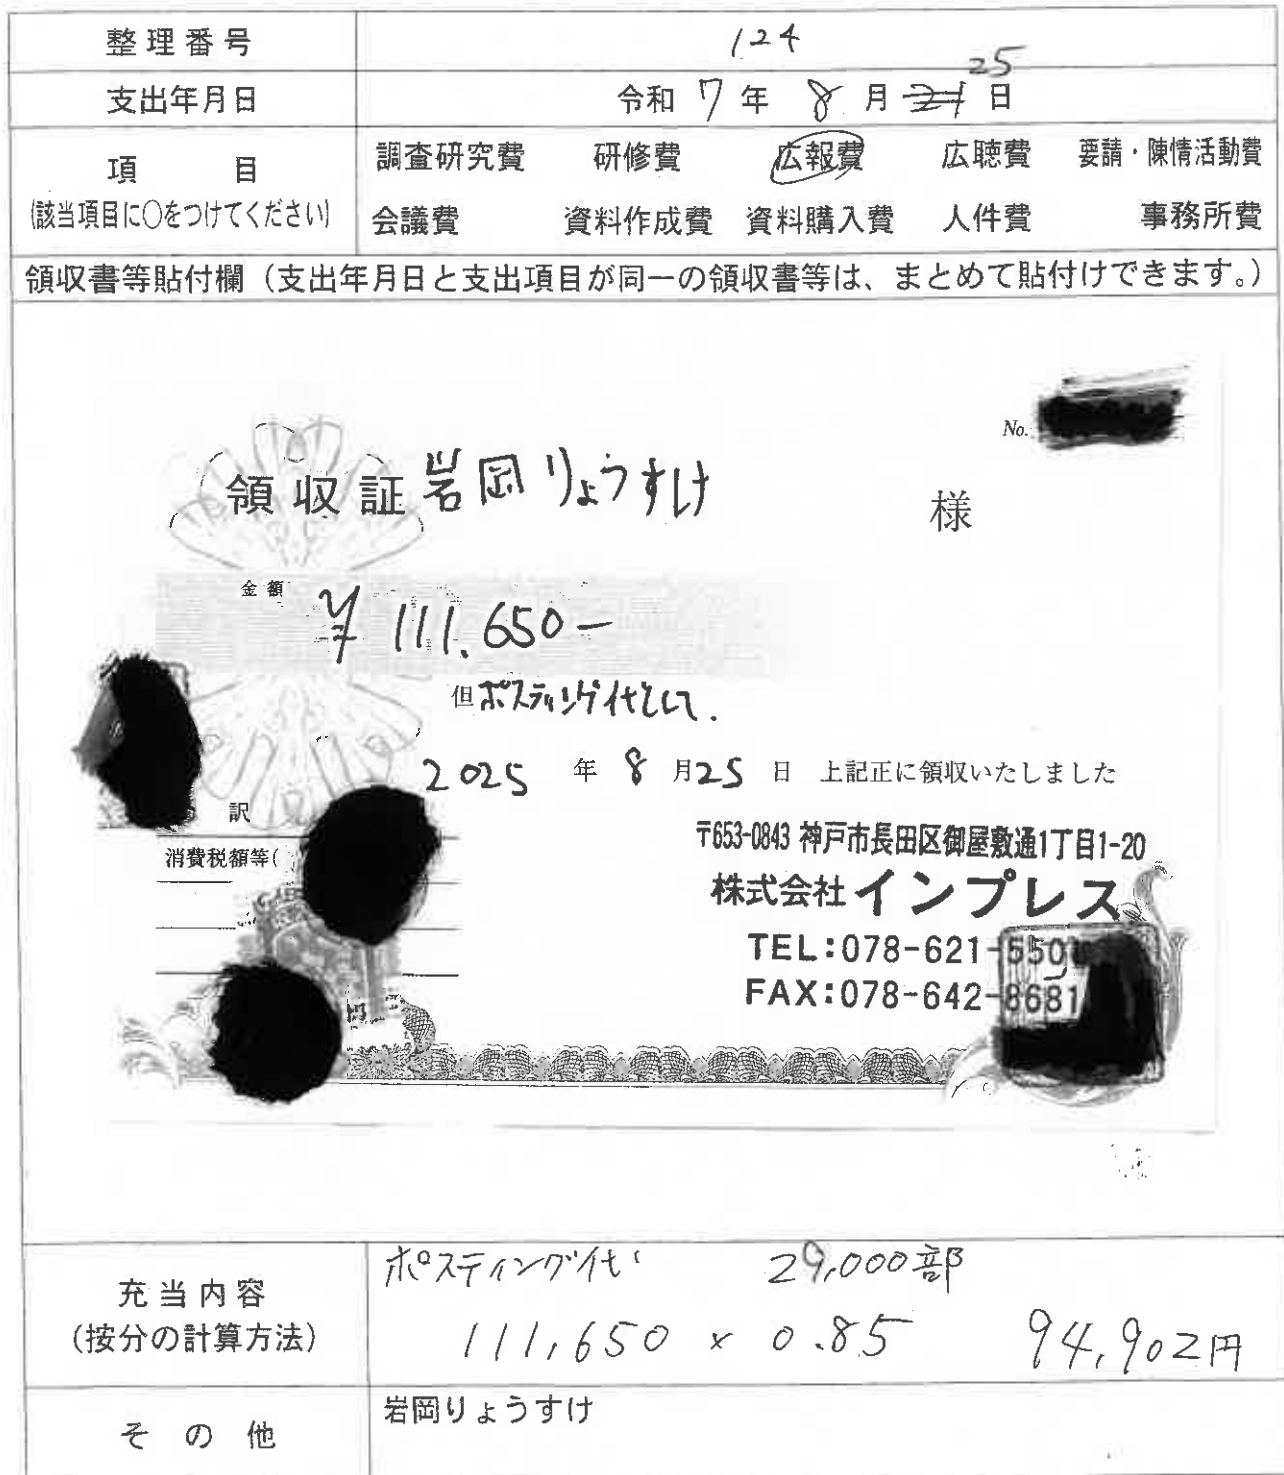 整理番号 124
25
支出年月日 令和 7 年 8 月 21 日
項目 調査研究費 研修費 広報費 広聴費 要請・陳情活動費
(該当項目に○をつけてください) 会議費 資料作成費 資料購入費 人件費 事務所費
領収書等貼付欄（支出年月日と支出項目が同一の領収書等は、まとめて貼付けできます。）
No.
領収証 岩岡りょうすけ 様
金額 ¥111.650-
但 ポスティング代として.
2025 年 8 月 25 日 上記正に領収いたしました
訳
消費税額等(
〒653-0843 神戸市長田区御屋敷通1丁目1-20
株式会社インプレス
TEL:078-621-550
FAX:078-642-8681
充当内容 ポスティング代 29,000部
(按分の計算方法) 111,650 × 0.85 94,902円
その他 岩岡りょうすけ